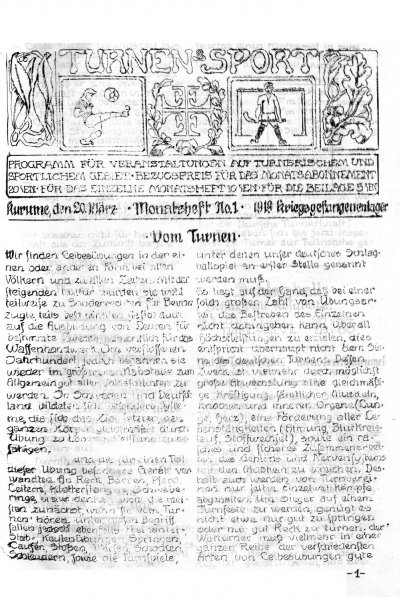 TURNEN & SPORT
PROGRAMM FÜR VERANSTALTUNGEN AUF TURNERISCHEM UND
SPORTLICHEM GEBIET · BEZUGSPREIS FÜR DAS MONATSABONNEMENT
20 SEN · FÜR DAS EINZELNE MONATSHEFT 10 SEN · FÜR DIE BEILAGE 5 SEN
Kurume, den 20. März · Monatsheft No. 1 · 1919 Kriegsgefangenenlager
Vom Turnen
Wir finden Leibesübungen in der ei-
nen oder anderen Form bei allen
Völkern und zu allen Zeiten. Mit der
steigenden Kultur wurden sie wohl
teilweise zu Sonderrechten für Bevor
zugte, teils beschränkten sie sich auch
auf die Ausbildung von Leuten für
bestimmte Zwecke, namentlich für das
Waffenhandwerk. Im verflossenen
Jahrhundert jedoch gewannen sie
wieder im großen Maßstabe zum
Allgemeingut aller Volksschichten zu
werden. In Schweden und Deutsch
land bildeten sich besondere Syste-
me, die sich das Ziel setzten, den
ganzen Körper gleichmäßig durch
Übung zu
fähigen.
und die für einen Teil
dieser Übung besondere Geräte ver
wandten als Reck, Barren, Pferd,
Leitern, Klettergerüst, Schwebe-
ringe, usw. denkt, wird die mei-
sten zunächst, wenn sie vom Tur-
nen hören, unter diesen Begriff
fallen jedoch ebenfalls Frei- und Ei-
stab-, Keulenübungen, Springen,
Laufen, Stoßen, Werfen, Schocken,
Schleudern, sowie die Turnspiele,
unter denen unser deutsches Schlag-
ballspiel an erster Stelle genannt
werden muß.
Es liegt auf der Hand, daß bei einer
solch großen Zahl von Übungsar-
ten das Bestreben des Einzelnen
nicht dahingehen kann, überall
Höchstleistungen zu erzielen, dies
entspricht überhaupt nicht dem Sin-
ne des deutschen Turnens. Dessen
Zweck ist vielmehr durch möglichst
große Abwechslung eine gleichmäßi-
ge Kräftigung sämtlicher Muskeln,
Knochen und inneren Organe (Lun-
ge, Herz), eine Förderung aller Le-
benstätigkeiten (Atmung, Blutkreis-
lauf, Stoffwechsel), sowie ein ra-
sches und sicheres Zusammenarbei-
ten des Gehirns und Nervensystems
mit den Muskeln zu erreichen. Des-
halb auch werden vom Turner sel-
ten nur Einzelwettkämpfe
ausgetragen. Um Sieger auf einem
Turnfeste zu werden, genügt es
nicht etwa, nur gut zu springen
oder nur gut Reck zu turnen, der
Wetturner muß vielmehr in einer
ganzen Reihe der verschiedensten
Arten von Leibesübungen gute
-1-